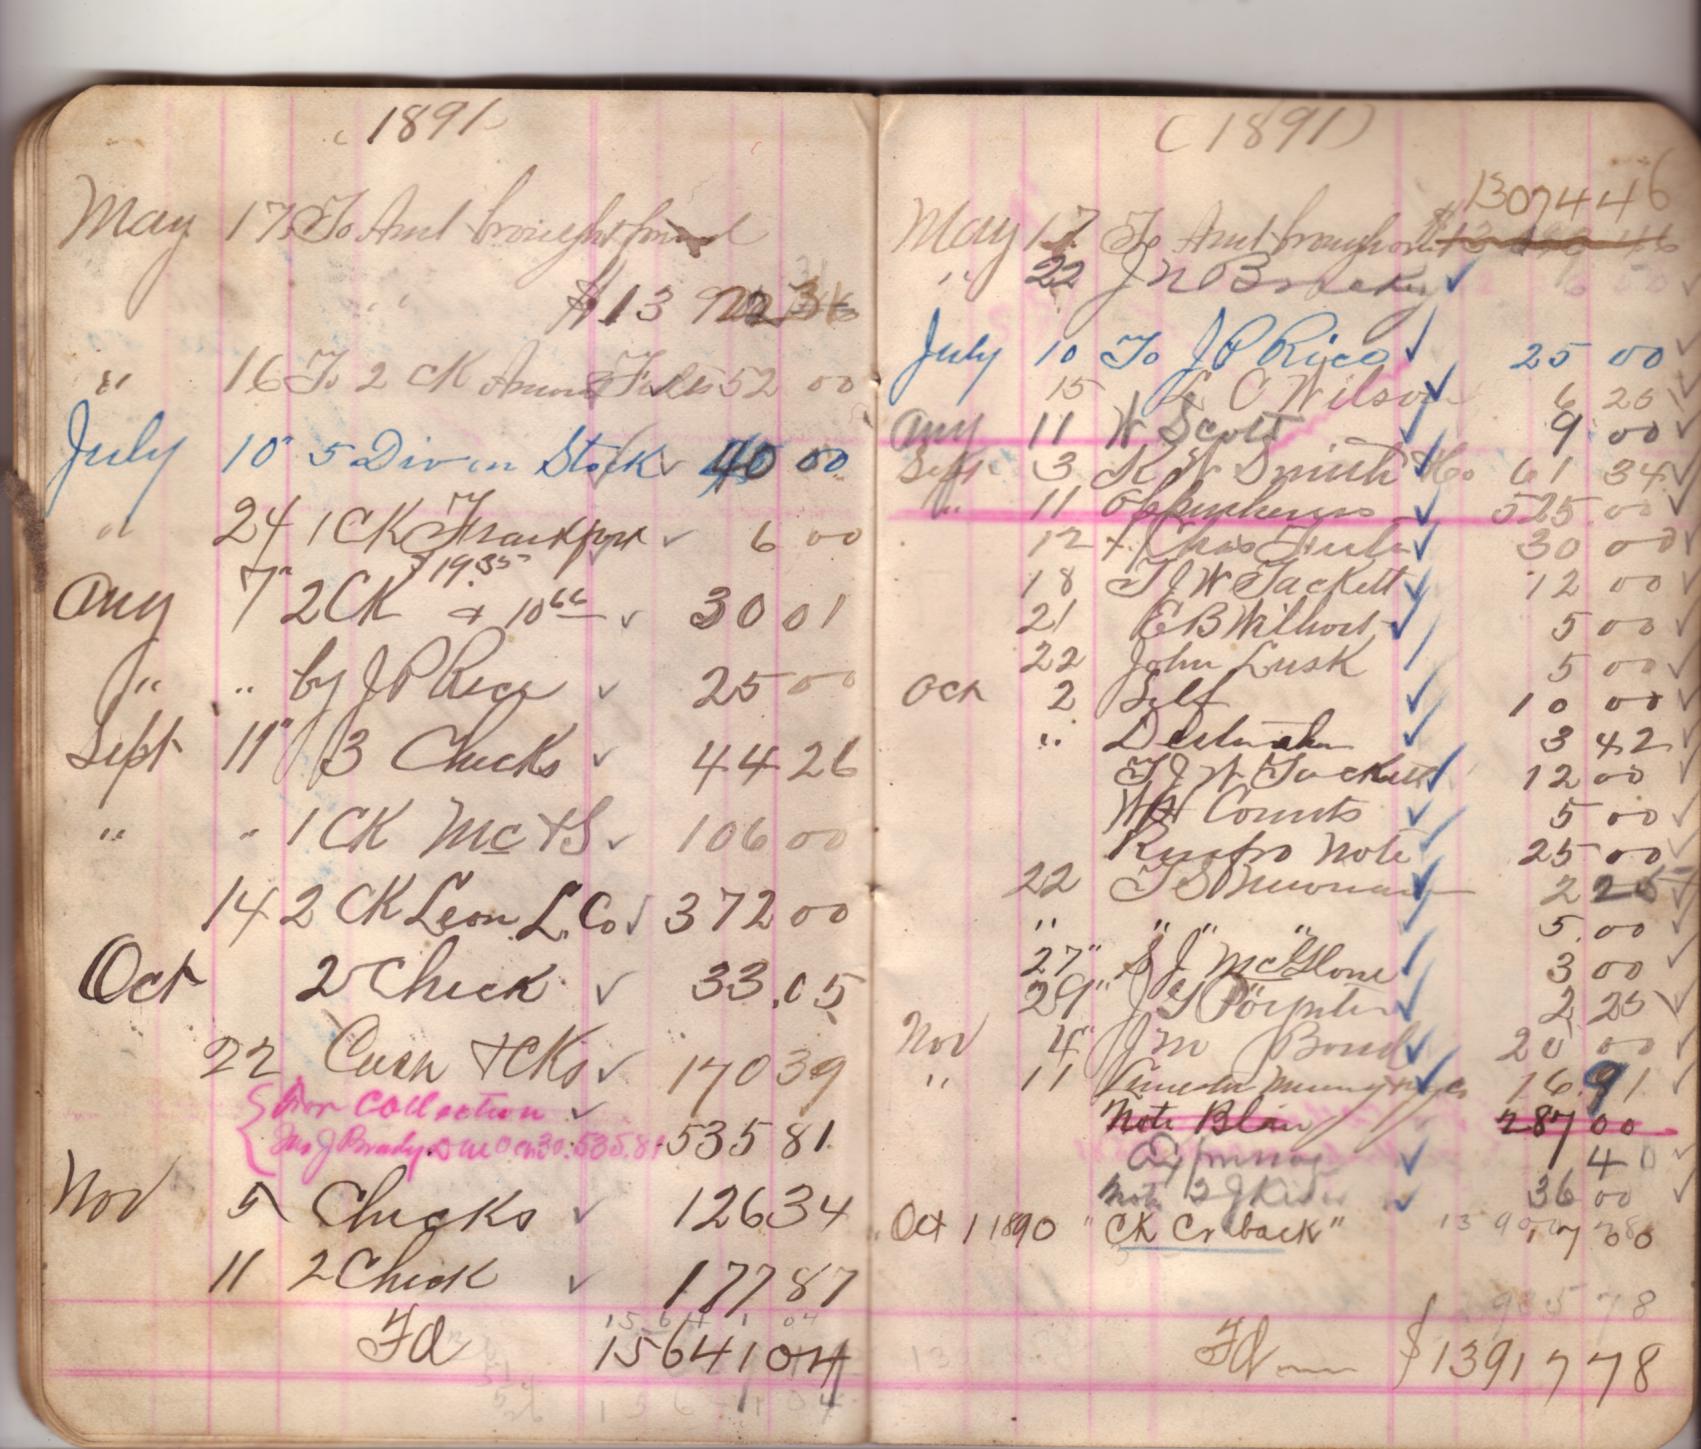 1891
May 17 To Amt brought forward
" $13 922 34
" 16 To 2 CK 52 00
July 10" 5 Div in Stock ✓ 40 00
" 24 1 CK Frankfort ✓ 6 00
$19.35
Aug 7" 2 CK & 10 66 ✓ 30 01
" " by J P Rice ✓ 25 00
Sept 11" 3 Checks ✓ 44 26
" " 1 CK Mc & S ✓ 106 00
14 2 CK Leon L. Co ✓ 372 00
Oct 2 Check ✓ 33.05
22 Cash & CKs ✓ 170 39
For Collection ✓
Jno J Brady Due 535.81 535 81
Nov 5 Checks ✓ 126 34
11 2 Check ✓ 177 87
15 641 04
Fd 15641 04
(1891)
13074 46
May 17 To Amt brought
" 22 J N ✓
July 10 To J P Rice ✓ 25 00 ✓
15 L C Wilson ✓ 6 25 ✓
Aug 11 W Scott ✓ 9 00 ✓
Sept 3 K W Smith & Co 61 34 ✓
" 11 ✓ 525 00 ✓
12 Chas ✓ 30 00 ✓
18 T J W Tackett ✓ 12 00 ✓
21 E B Wilhoit ✓ 5 00 ✓
22 John Lusk ✓ 5 00 ✓
Oct 2 Self ✓ 10 00 ✓
" ✓ 3 42 ✓
T J W Tackett ✓ 12 00 ✓
W H Counts ✓ 5 00 ✓
Note ✓ 25 00 ✓
22 T S ✓ 2 25 ✓
" " " " ✓ 5.00 ✓
27" S J McGlone ✓ 3 00 ✓
29" J S Poynter ✓ 2 25 ✓
Nov 4" J M Bond ✓ 20 00 ✓
" 11 ✓ 16.91 ✓
Note Blair 287 00
✓ 40 ✓
Note ✓ 36 00 ✓
Oct 1 1890 "CK Cr back"
Fd $13917 78